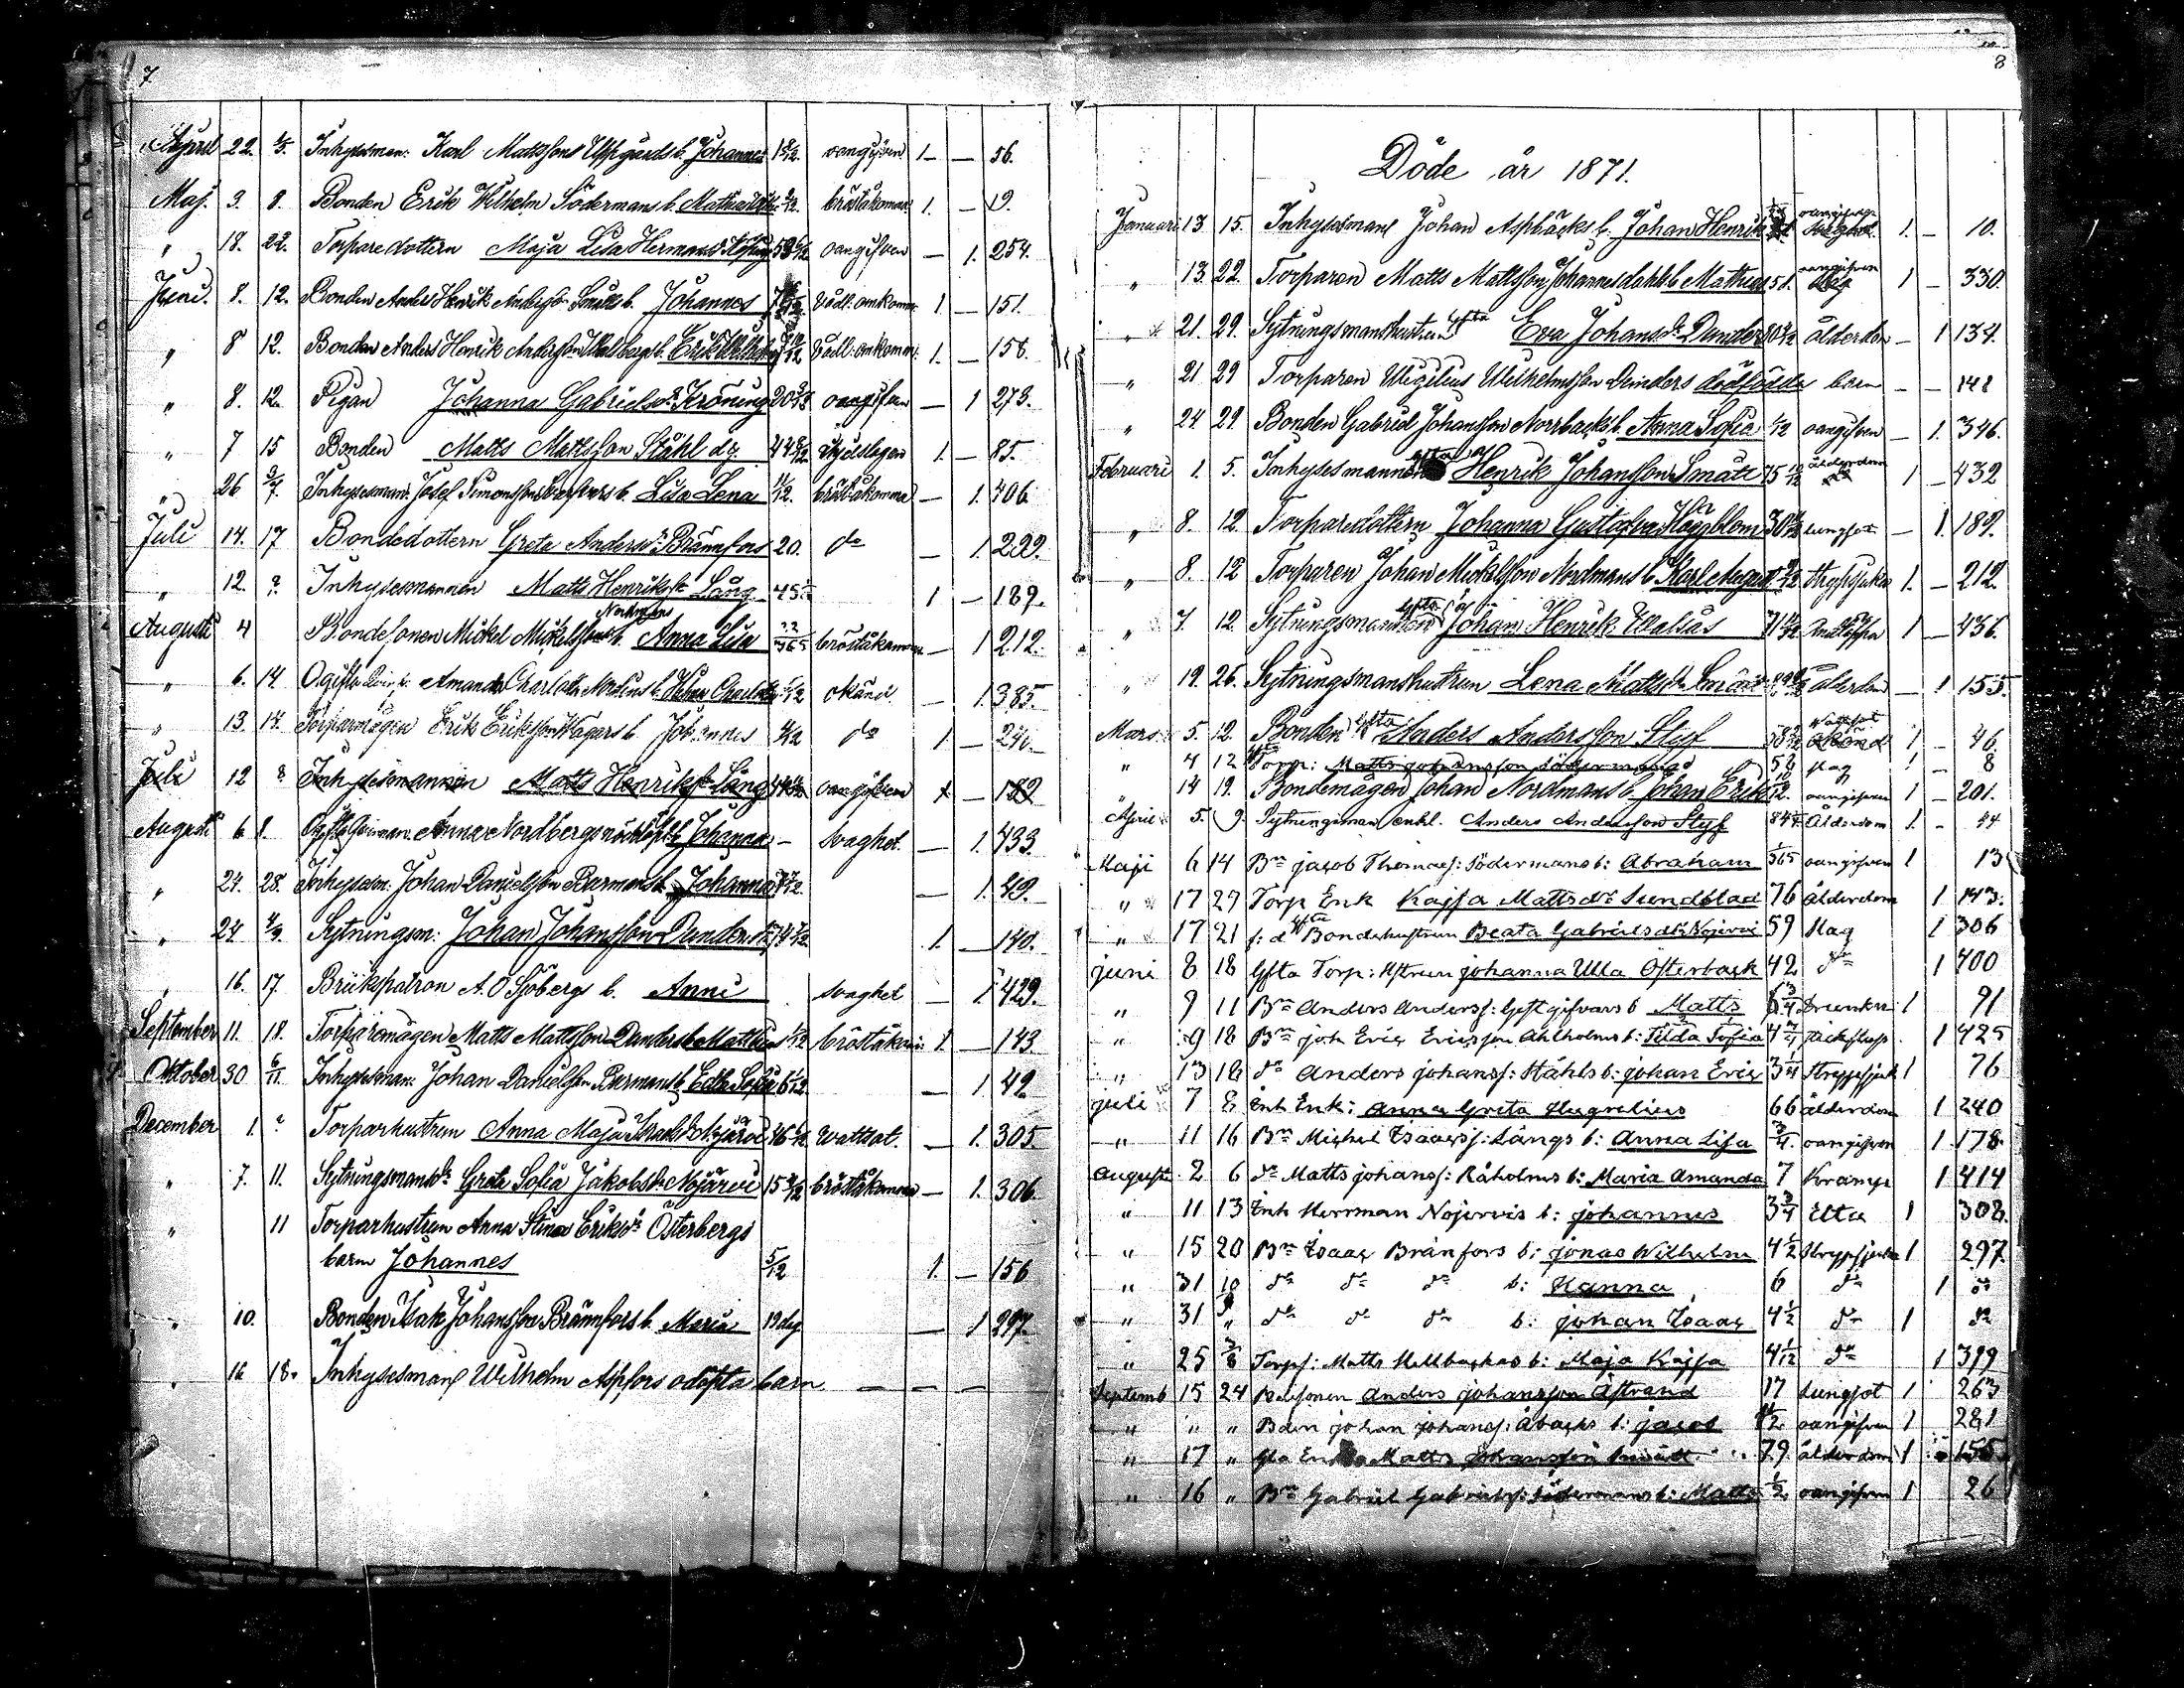 7.
April 22. Inhysesman: Karl Mattssons Uppgårds b. Johannes oangifven 1 — 56.
Maj. 3. 8. Bonden Erik Wilhelm Södermans b. Mathias bröståkomma 1. — 19.
" 18. 22. Torparedottern Maja Lisa Hermansdr oangifven — 1. 254.
Juni. 8. 12. Bonden Anders Henrik Andersson Smitts b. Johannes Vådl. omkomm. 1 — 151.
" 8 12. Bonden Anders Henrik Andersson b. Erik Wilhelm Vådl: omkomm: 1. — 158.
" 8. 12. Pigan Johanna Gabrielsdr Kröning oangifven — 1 273.
" 7 15 Bonden Matts Mattsson Ståhl dy. ihjelslagen 1. — 85.
" 26 3/7. Inhysesman: Josef Simonssons b. Lisa Lena 11/12. bröståkomma — 1. 406.
Juli 14. 17 Bondedottern Greta Andersdr Brännfors 20. do — 1. 299.
" 12. ? Inhysesmannen Matts Henrikss. Lång 45 1 — 189.
Augusti 4 Bondesonen Mickel Mickelsson Nordmans b. Anna Lisa 22/365 bröståkomma — 1 212.
" 6. 14. Ogifta Amanda Charlotta Nordins b. Charlotta 1/12 okänd — 1. 385.
" 13. 14. Torparmågen Erik Eriksson Kapars b. Johannes 4/12 do 1 —
Juli 12 ? Inhysesmannen Matts Henrikss. Lång oangifven 1 — 189
Augusti 6 8. Anna Nordbergs b. Johanna — svaghet. — 1. 433.
" 24. 28. Inhysesm. Johan Danielsson Barmans b. Johanna — 1. 49.
" 24 4/9. Sytningsm: Johan Johansson Dunder 1. — 140.
" 16. 17. Brukspatron A. O Sjöbergs b. Anni svaghet — 1 429.
September 11. 18. Torparemågen Matts Mattsson Dunders b. Matthias 1/12 bröståkom: 1. — 143.
Oktober 30 6/11. Inhysesman: Johan Danielsson Barmans b. Edla Sofia — 1. 49
December 1. ? Torparhustrun Anna Maja Nojärvi 46 wattsot. — 1. 305.
" 7. 11. Sytningsmansdr Greta Sofia Jakobsdr Nojärvi 15 bröståkomma — 1. 306.
" 11 Torparhustrun Anna Stina Eriksdr Österbergs
barn Johannes 5/12 1. — 156
" 10. Bonden Isak Johansson Brännfors b. Maria 19 dag — 1 297.
" 16 18. Inhysesman Wilhelm Aspfors odöpta barn — — —
8
Döde år 1871.
Januari 13 15. Inhysesman Johan Aspbacks b. Johan Henrik 1. — 10.
" 13. 22. Torparen Matts Mattsson Johannesdahls b. Mathias oangifven 1 — 330.
" 21. 29. Sytningsmanshustrun gfta Eva Johansdr Dunder ålderdom — 1 134.
" 21 29 Torparen Wigilius Wilhelmsson Dunders dödfödda barn — — 141
" 24 29. Bonden Gabriel Johansson Norrbacks b. Anna Sofia 1/12 oangifven — 1. 346.
Februari 1. 5. Inhysesmannen gfta Henrik Johansson Smått 75 ålderdom 1 — 432
" 8. 12. Torparedottern Johanna Gustafva Häggblom lungsot — 1. 189.
" 8. 12 Torparen Johan Mickelsson Nordmans b. Karl August strypsjuka 1. — 212.
" 7. 12. Sytningsmannen gfta Johan Henrik Wallsäs 1 — 436.
" 19. 26. Sytningsmanshustrun Lena Mattsdr Smått ålderdom — 1 155.
Mars 5. 12. Bonden gfta Anders Andersson Styf Wattsot okänd 1 — 46.
" 4 12 Torp: Matts Johansson Södermans 52 slag 1 — 8
" 14 19. Bondemågen Johan Nordmans b. Johan Erik oangifven 1 — 201.
April 5. 9. Sytningsman enkl. Anders Andersson Styf ålderdom 1. - 44
Maji 6 14 Bn Jacob Thomass: Södermans b: Abraham 5/365 oangifven 1 13
" 17 29 Torp Enk Kajsa Mattsdr Sundblad 76 ålderdom 1 143.
" 17 21 f: d gfta Bondehustrun Beata Gabrielsdr Nojärvi 59 slag 1 306
Juni 8 18 Gfta Torp: hstrun Johanna Ulla Österback 42 do 1 400
" 9 11 Bn Anders Anderss: Gästgifvars b Matts 6 3/4 drunkn 1 91
" 9 18 Bn Joh Eric Ericsson Ahlholms b: Tilda Sofia 1 425
" 13 18 do Anders Johanss: Ståhls b: Johan Eric 3 1/4 Strypsjuk 1 76
Juli 7 8 Inh Enk: Anna Greta Hagrelius 66 ålderdom 1 240
" 11 16 Bn Michel Isaacss: Långs b: Anna Lisa 3/4 oangifven 1 178
Augusti 2 6 do Matts Johanss: Råholms b: Maria Amanda 7 Kramp 1 414
" 11 13 Inh Herrman Nojervis b: Johannes 3 3/4 Elta 1 308.
" 15 20 Bn Isaac Brånfors b: Jonas Wilhelm 4 1/2 Strypsjuka 1 297.
" 31 10 do do do b: Hanna 6 do 1 do
" 31 " do do do b: Johan Isaac 4 1/2 do 1 do
" 25 3/8 Torps: Matts Hellbackas b: Maja Kajsa 4 1/12 do 1 319
Septemb 15 24 Bdesonen Anders Johansson Åstrand 17 Lungsot 1 263
" " " Bden Johan Johanss: Åbacks b: Jacob oangifven 1 281
" 17 " Gla Matts Johansson Smått 79 ålderdom 1 155
" 16 " Bn Gabriel Gabrielss: Södermans b: Matts 1/2 oangifven 1 26